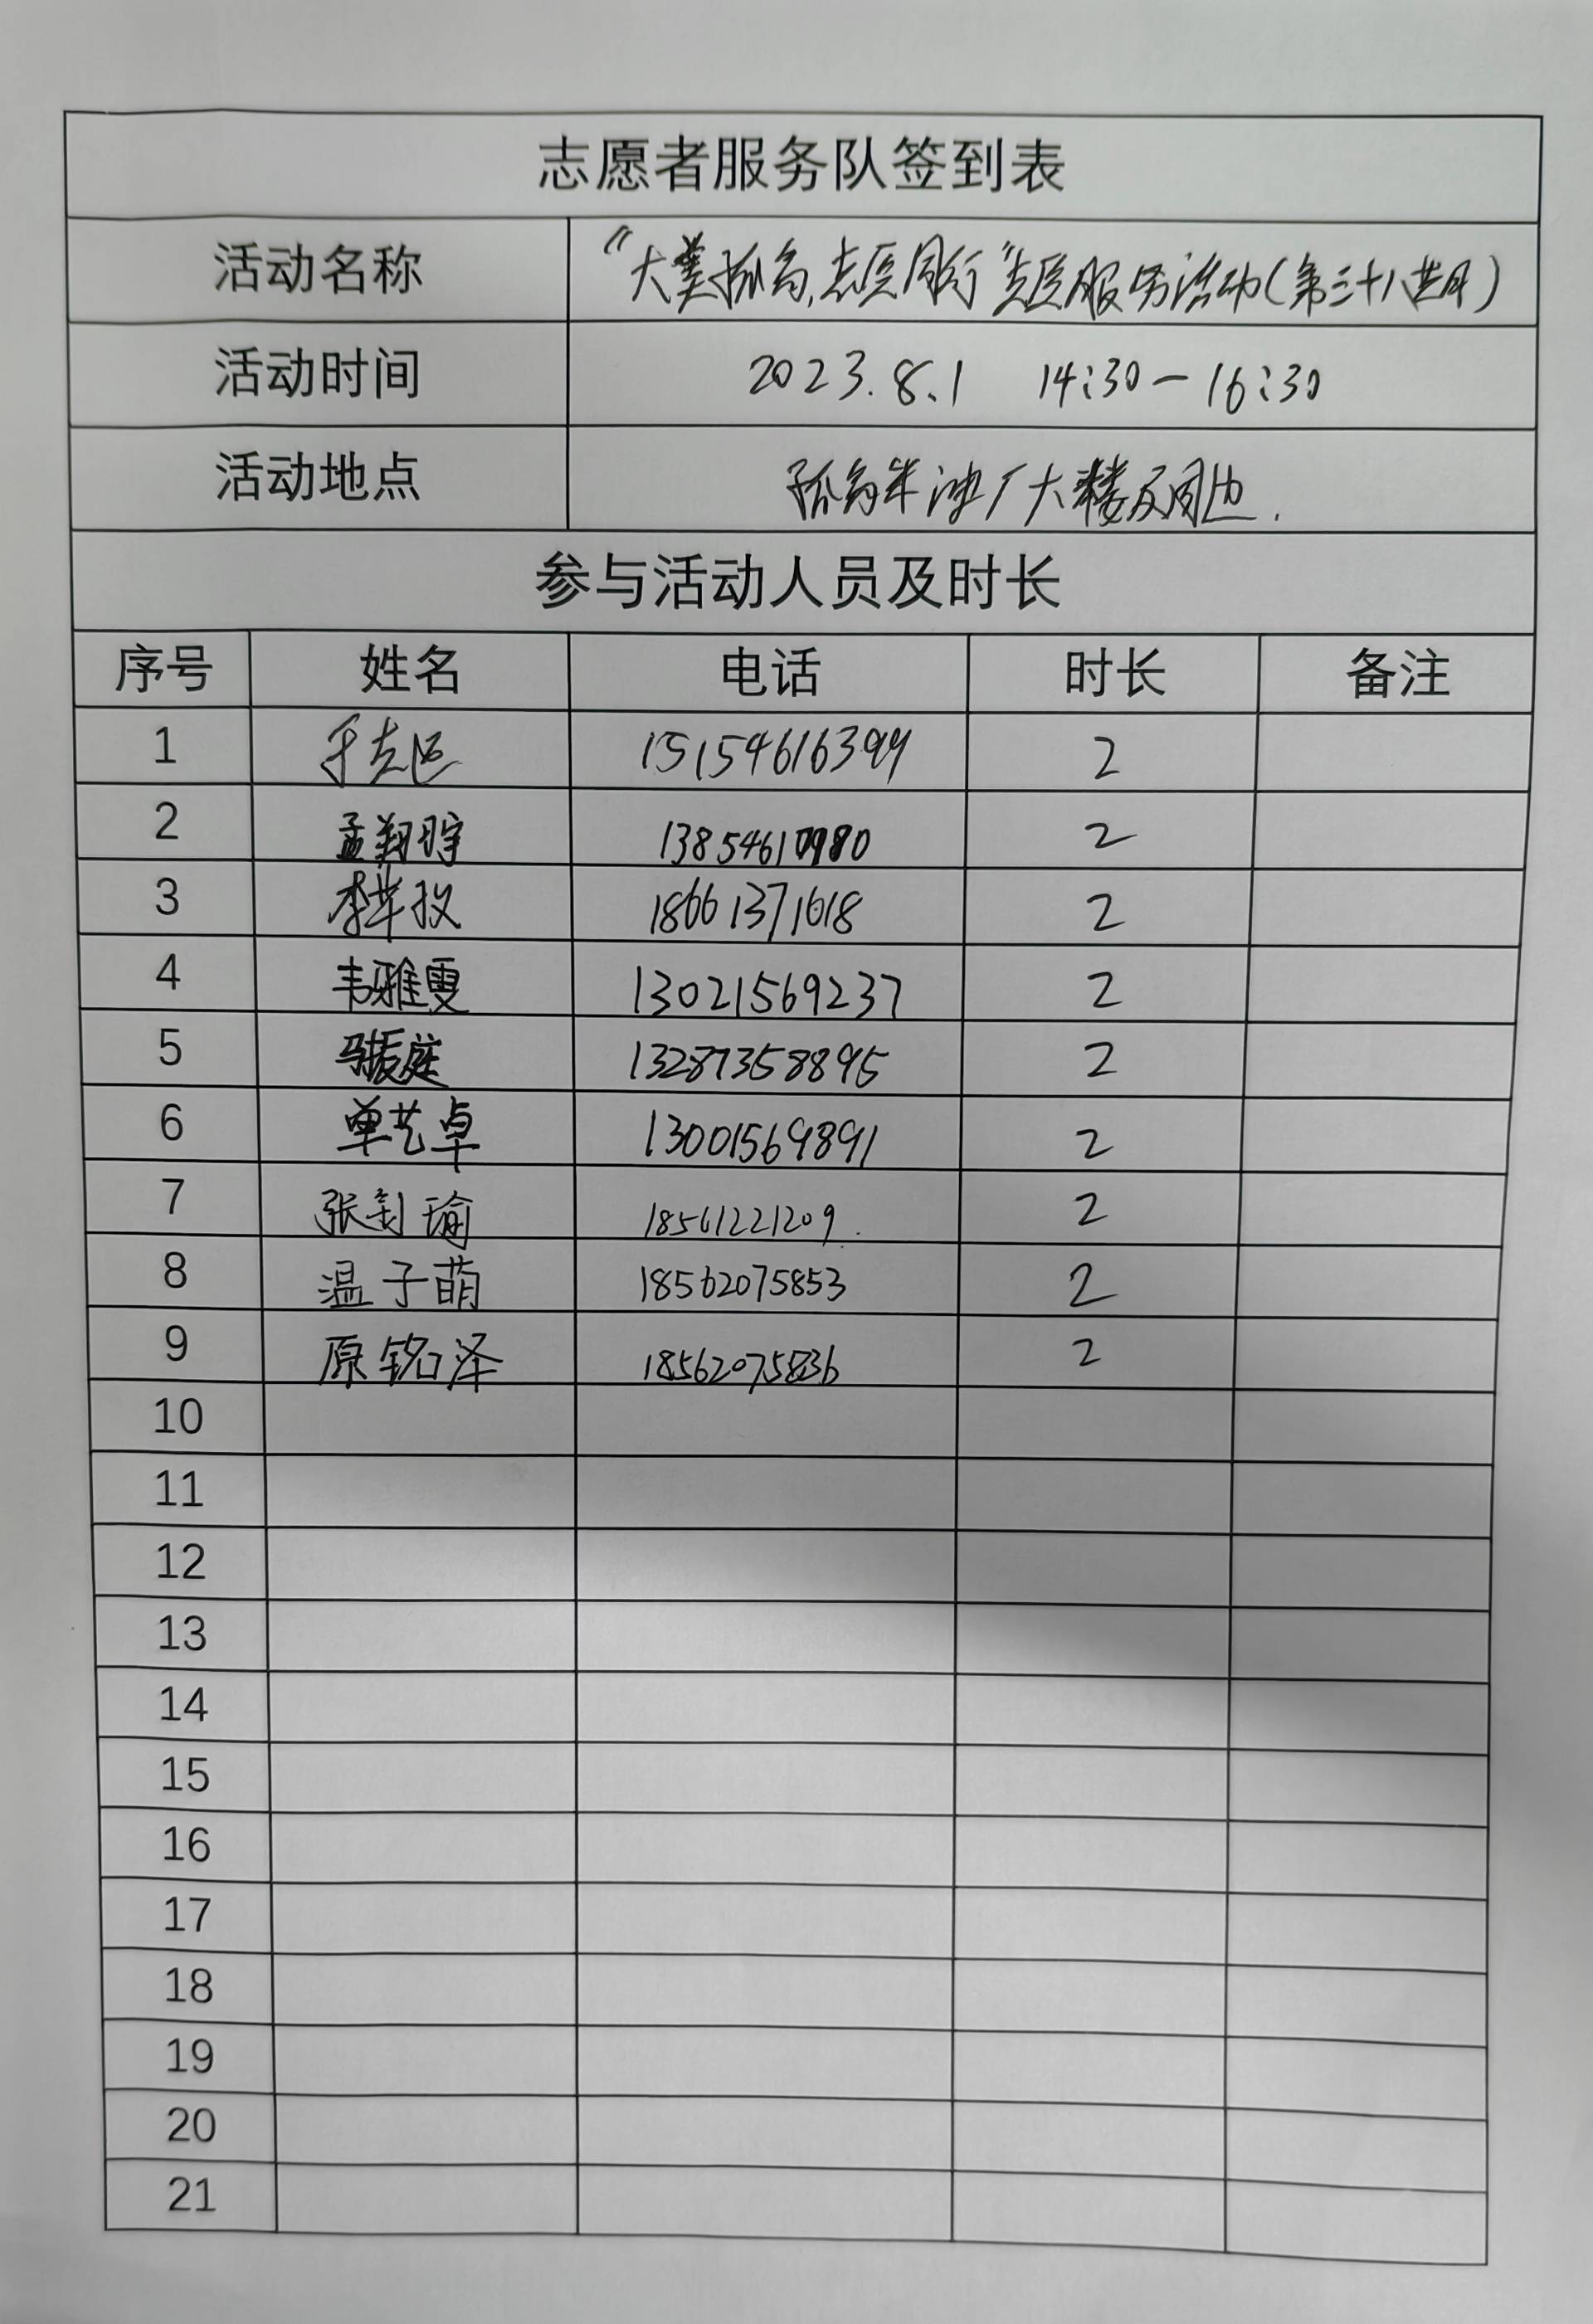 志愿者服务队签到表
活动名称 "大美孤岛,志愿同行"志愿服务活动(第三十八期)
活动时间 2023.8.1 14:30—16:30
活动地点 孤岛采油厂大楼及周边.
参与活动人员及时长
序号 姓名 电话 时长 备注
1 15154616399 2
2 孟翔宇 13854610980 2
3 李 18661371618 2
4 韦雅雯 13021569237 2
5 马振庭 13287358895 2
6 单艺卓 13001569891 2
7 张钊瑜 18561221209. 2
8 温子萌 18562075853 2
9 原铭泽 18562075836 2
10
11
12
13
14
15
16
17
18
19
20
21